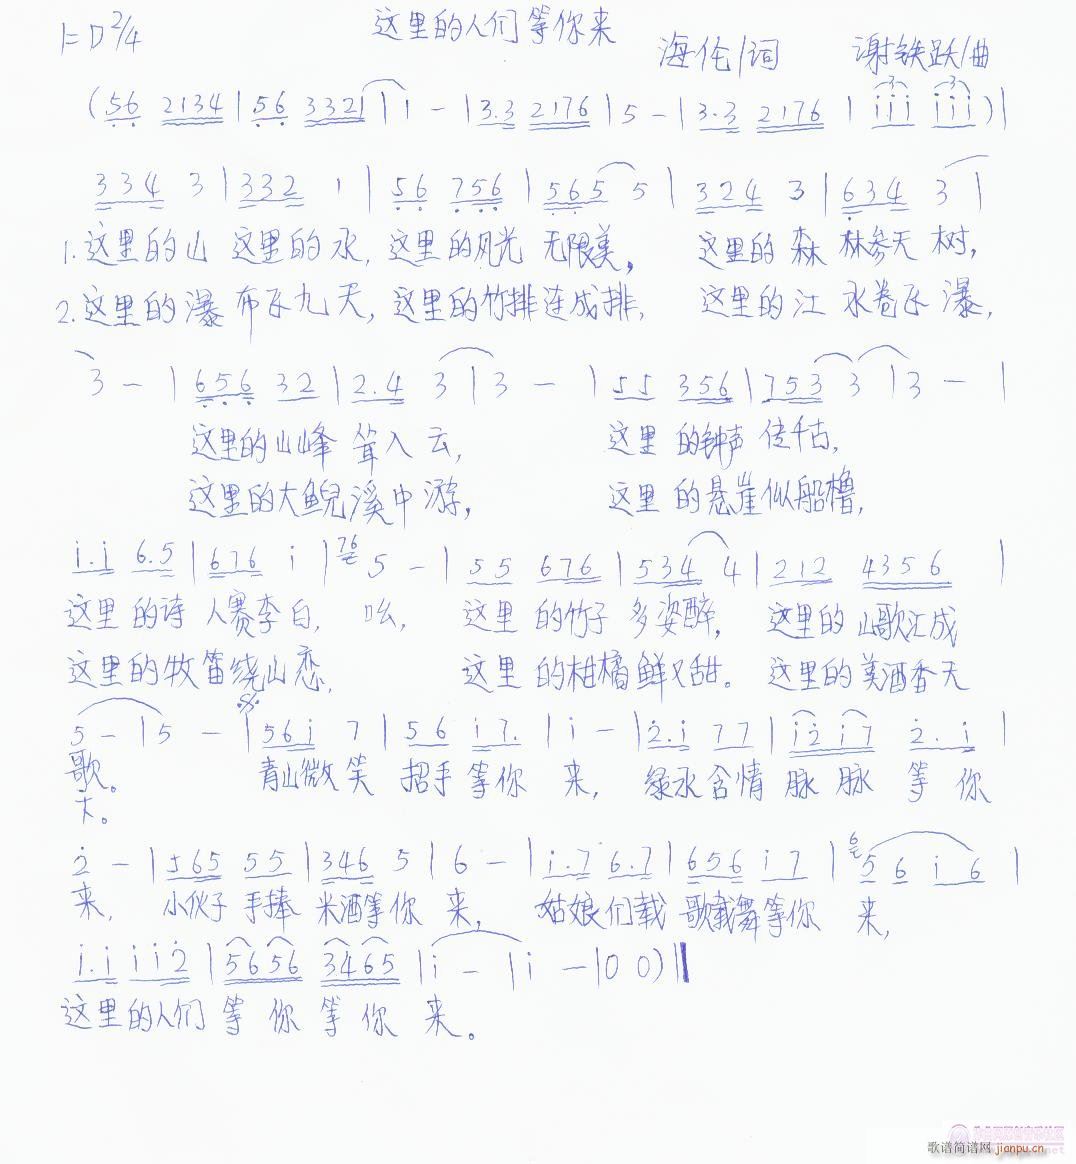 这里的人们等你来
1=D 2/4
海伦/词 谢铁跃/曲
(56 2134 | 56 3321 | 1 - | 3.3 2176 | 5 - | 3.3 2176 | iii iii) |
334 3 | 332 1 | 56 756 | 565 5 | 324 3 | 634 3 |
1.这里的山 这里的水, 这里的风光 无限美, 这里的森 林参天 树,
2.这里的瀑 布飞九天, 这里的竹排连成排, 这里的江 水卷飞 瀑,
3 - | 656 32 | 2.4 3 | 3 - | 55 356 | 753 3 | 3 - |
这里的山峰 耸入云, 这里 的钟声 传千古,
这里的大鲵溪中游, 这里 的悬崖似船橹,
i.i 6.5 | 676 i | 76 5 - | 55 676 | 534 4 | 212 4356 |
这里 的诗 人赛李白, 吆, 这里 的竹子 多姿醉, 这里的 山歌汇成
这里的牧笛绕山恋, 这里 的柑橘鲜又甜。 这里的 美酒香天
5 - | 5 - | 56i 7 | 56 i7. | i - | 2.i 77 | i2i7 2.i |
歌。 青山微笑 招手等你 来, 绿水含情 脉脉 等你
下。
2 - | 565 55 | 346 5 | 6 - | i.7 6.7 | 656 i7 | 6 5 6 i 6 |
来, 小伙子 手捧 米酒等你 来, 姑娘们载 歌载舞等你 来,
i.i ii2 | 5656 3465 | i - | i - | 0 0) ||
这里的人们 等你等你 来。
歌谱简谱网 jianpu.cn